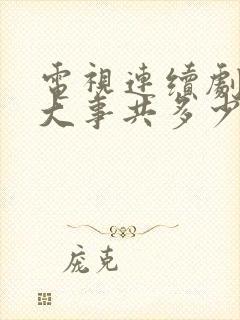 電視連續劇
大事共多少
庞克